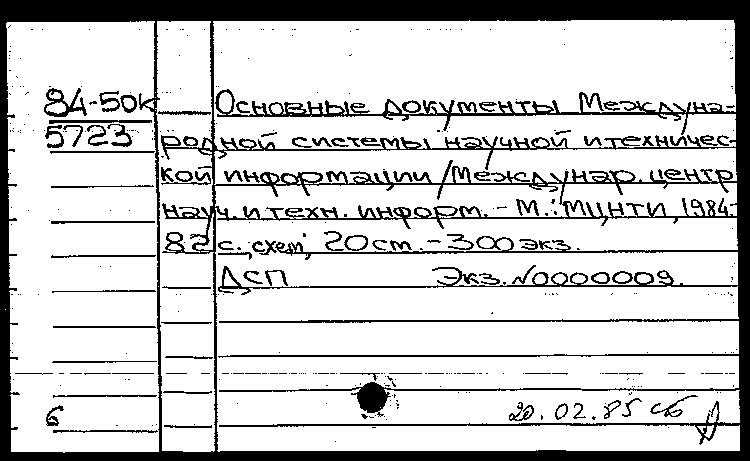 84-50к
5723
Основные документы Междуна-
родной системы научной и техничес-
кой информации / Междунар. центр
науч. и техн. информ. - М.: МЦНТИ, 1984.-
82 с., схем; 20 ст. - 300 экз.
ДСП Экз. №0000009.
6
20.02.85 сб